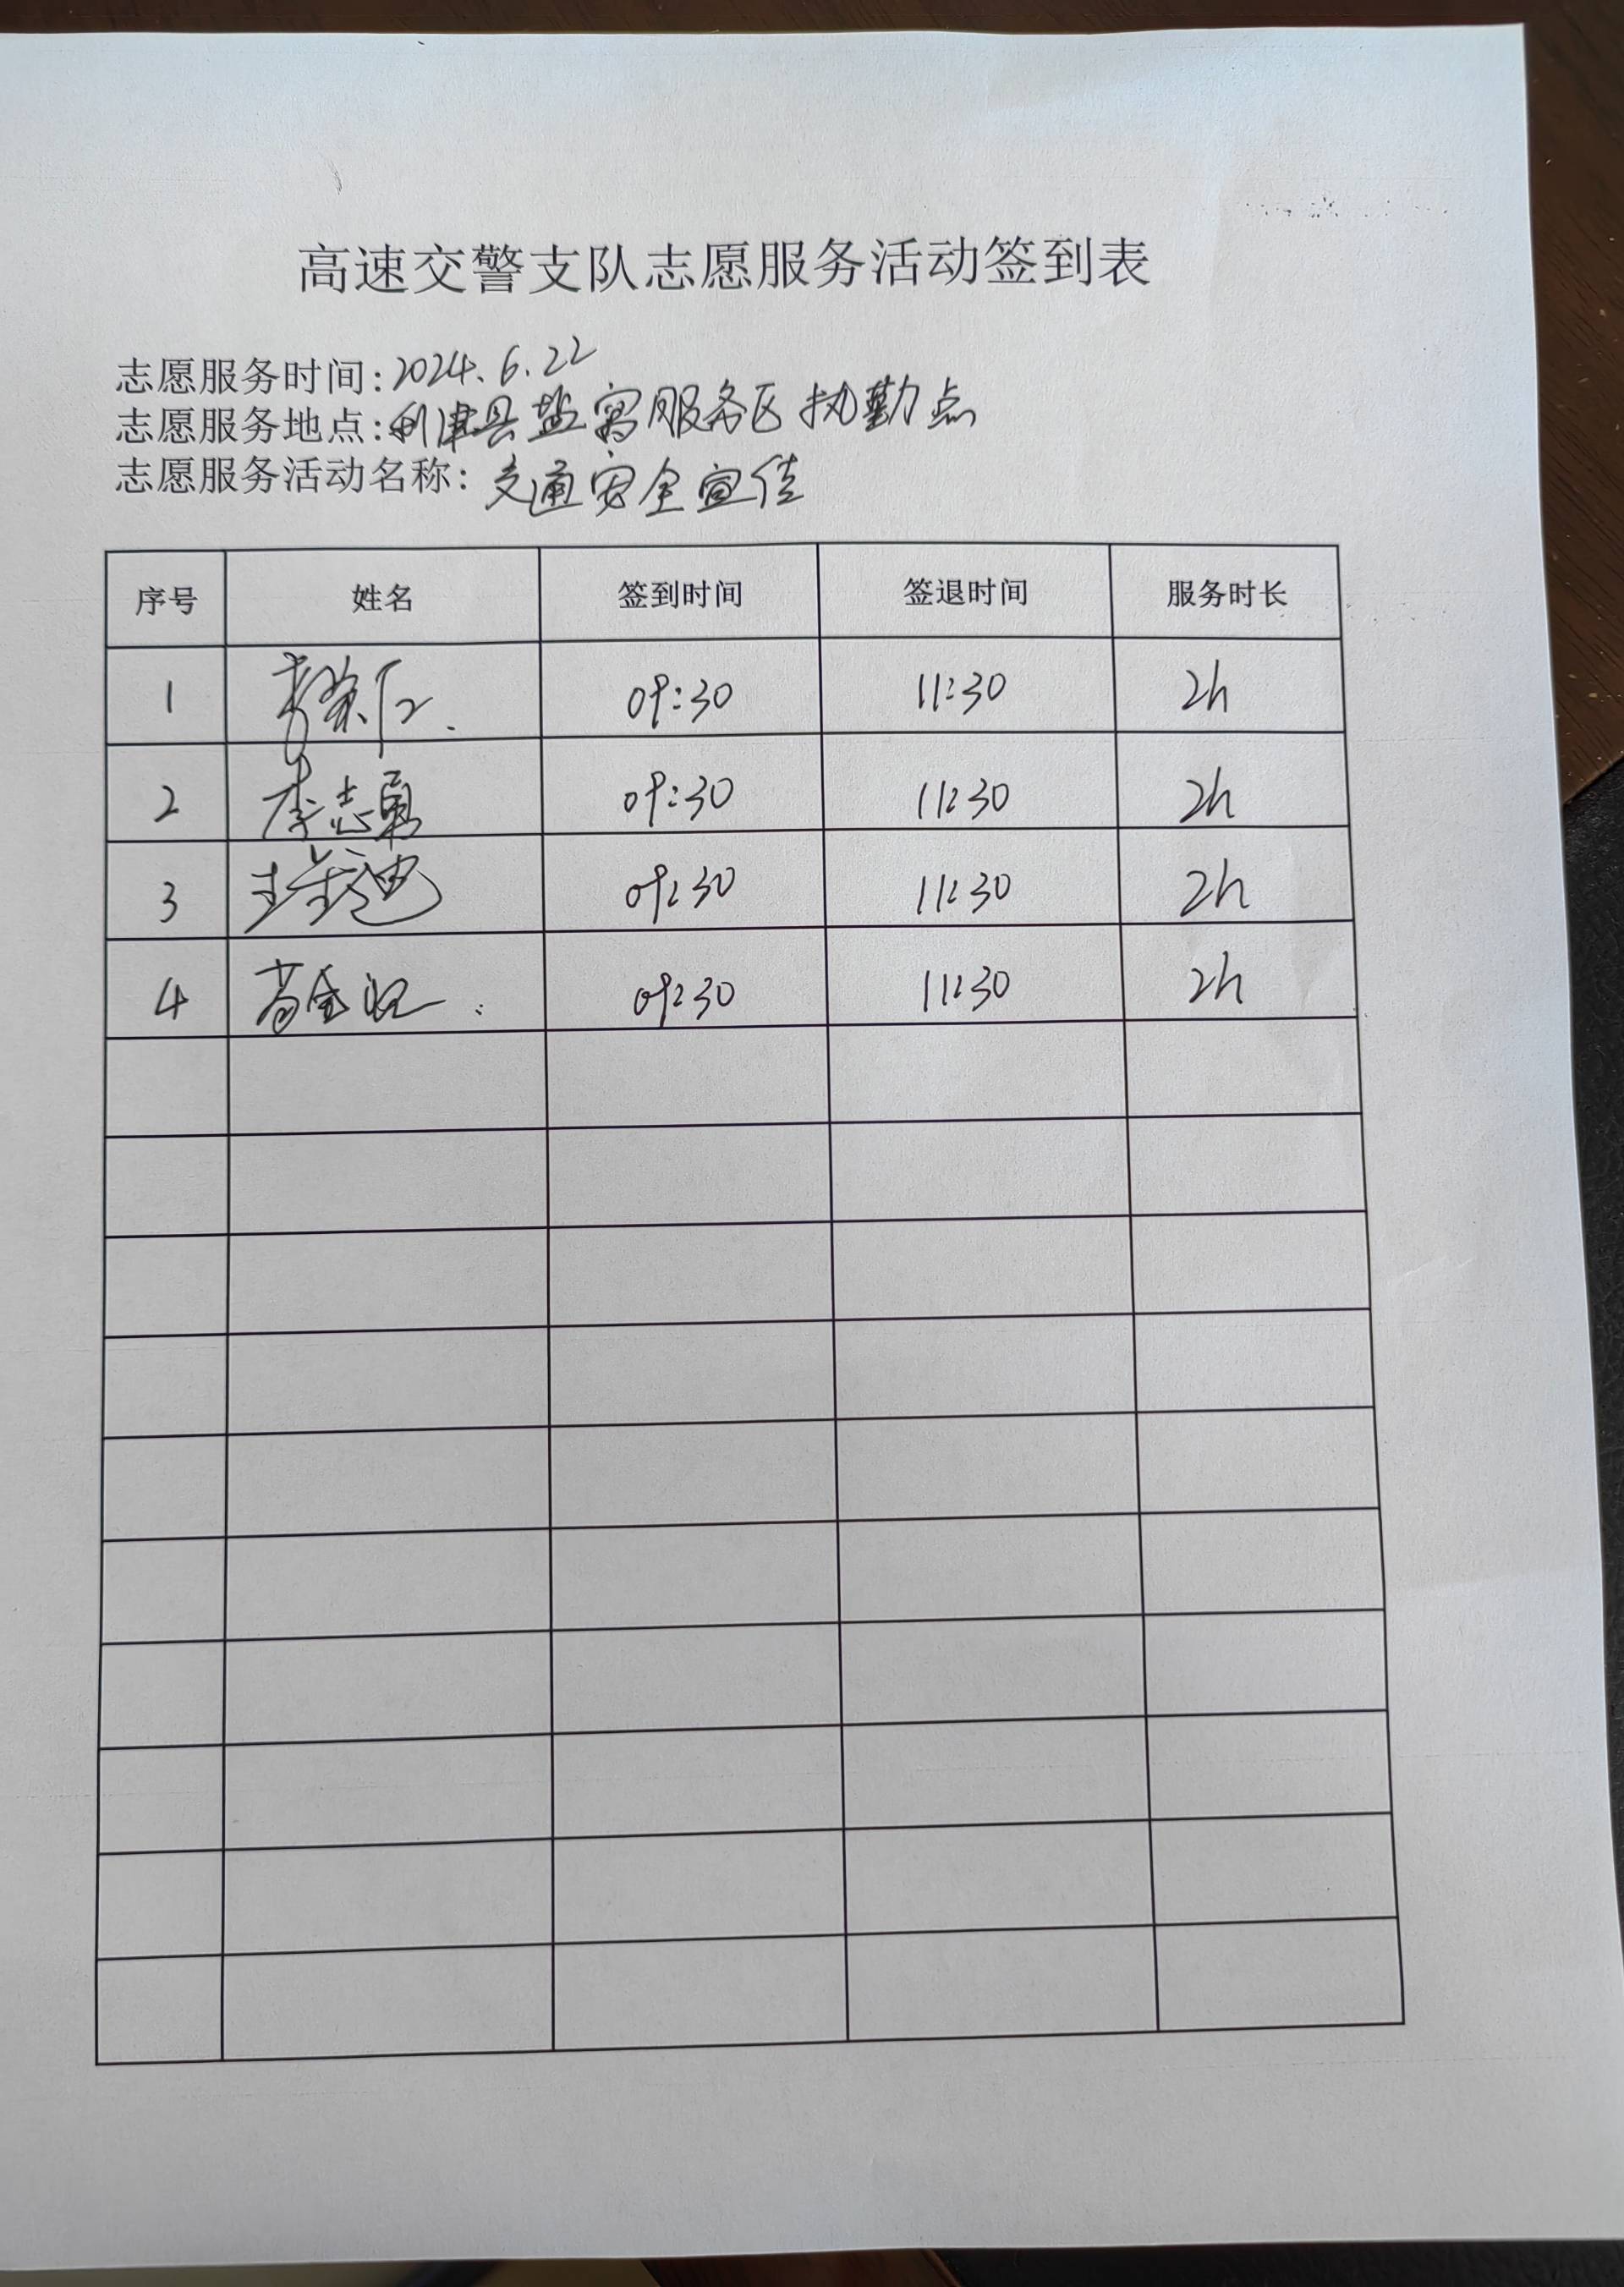 高速交警支队志愿服务活动签到表
志愿服务时间：2024.6.22
志愿服务地点：利津县盐窝服务区执勤点
志愿服务活动名称：交通安全宣传
序号 姓名 签到时间 签退时间 服务时长
1 09:30 11:30 2h
2 李志勇 09:30 11:30 2h
3 09:30 11:30 2h
4 09:30 11:30 2h